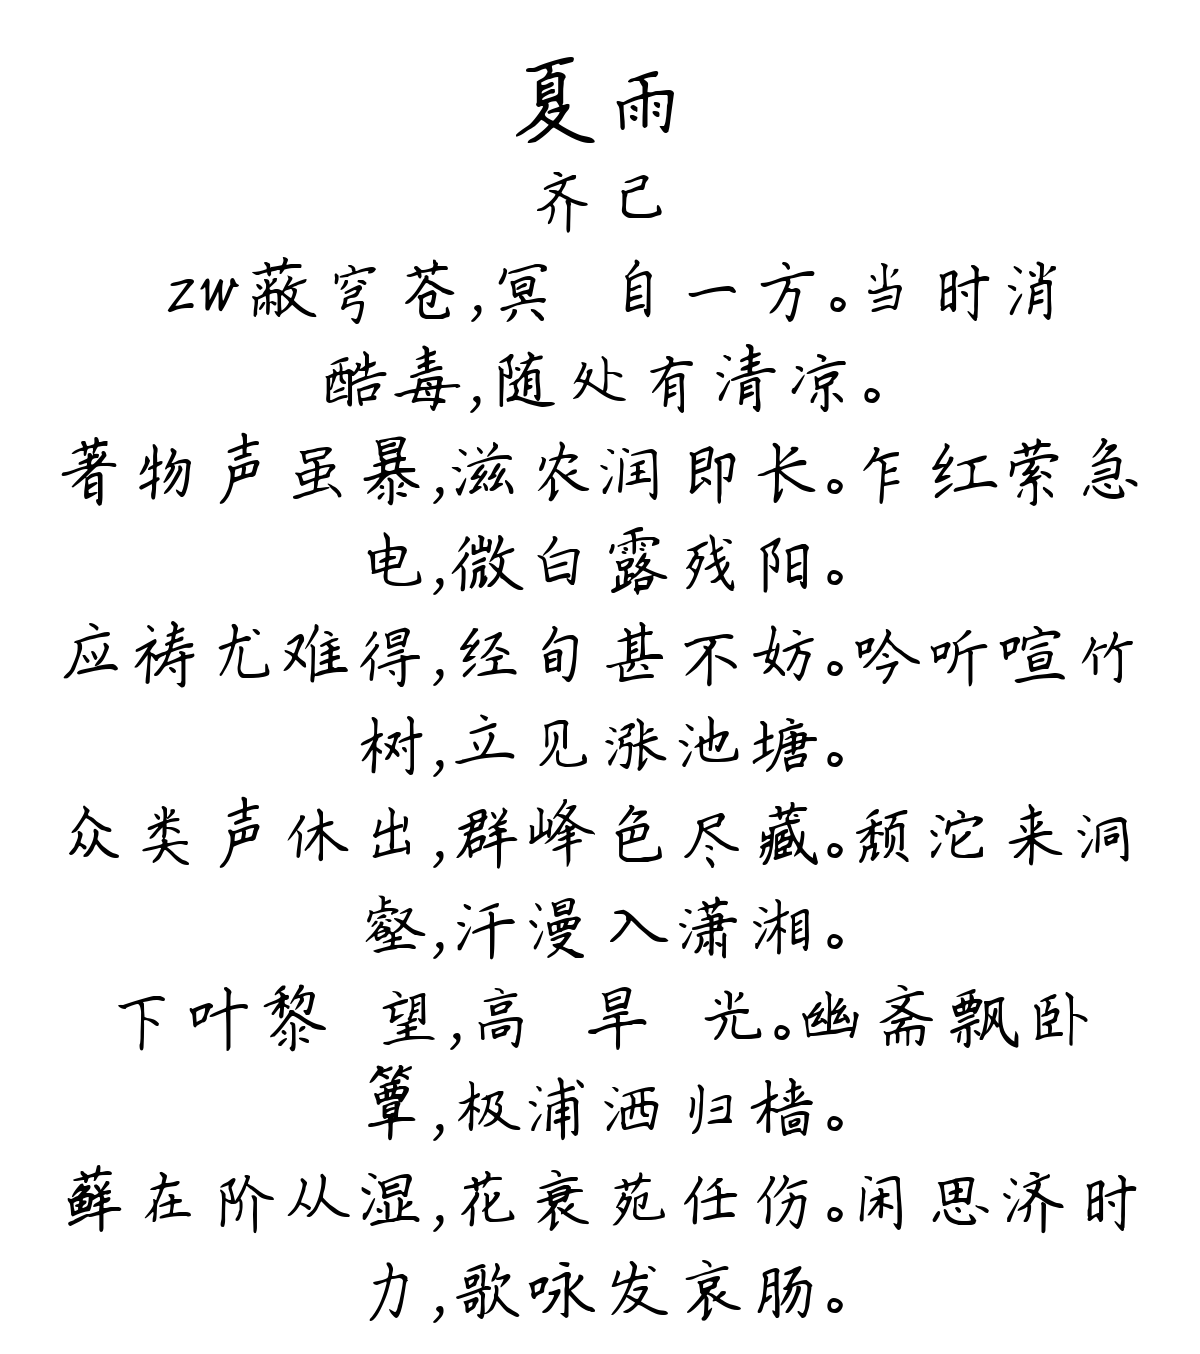 夏雨
齐己
zw蔽穹苍,冥 自一方。当时消
酷毒,随处有清凉。
著物声虽暴,滋农润即长。乍红萦急
电,微白露残阳。
应祷尤难得,经旬甚不妨。吟听喧竹
树,立见涨池塘。
众类声休出,群峰色尽藏。颓沱来洞
壑,汗漫入潇湘。
下叶黎 望,高 旱 光。幽斋飘卧
簟,极浦洒归樯。
藓在阶从湿,花衰苑任伤。闲思济时
力,歌咏发哀肠。